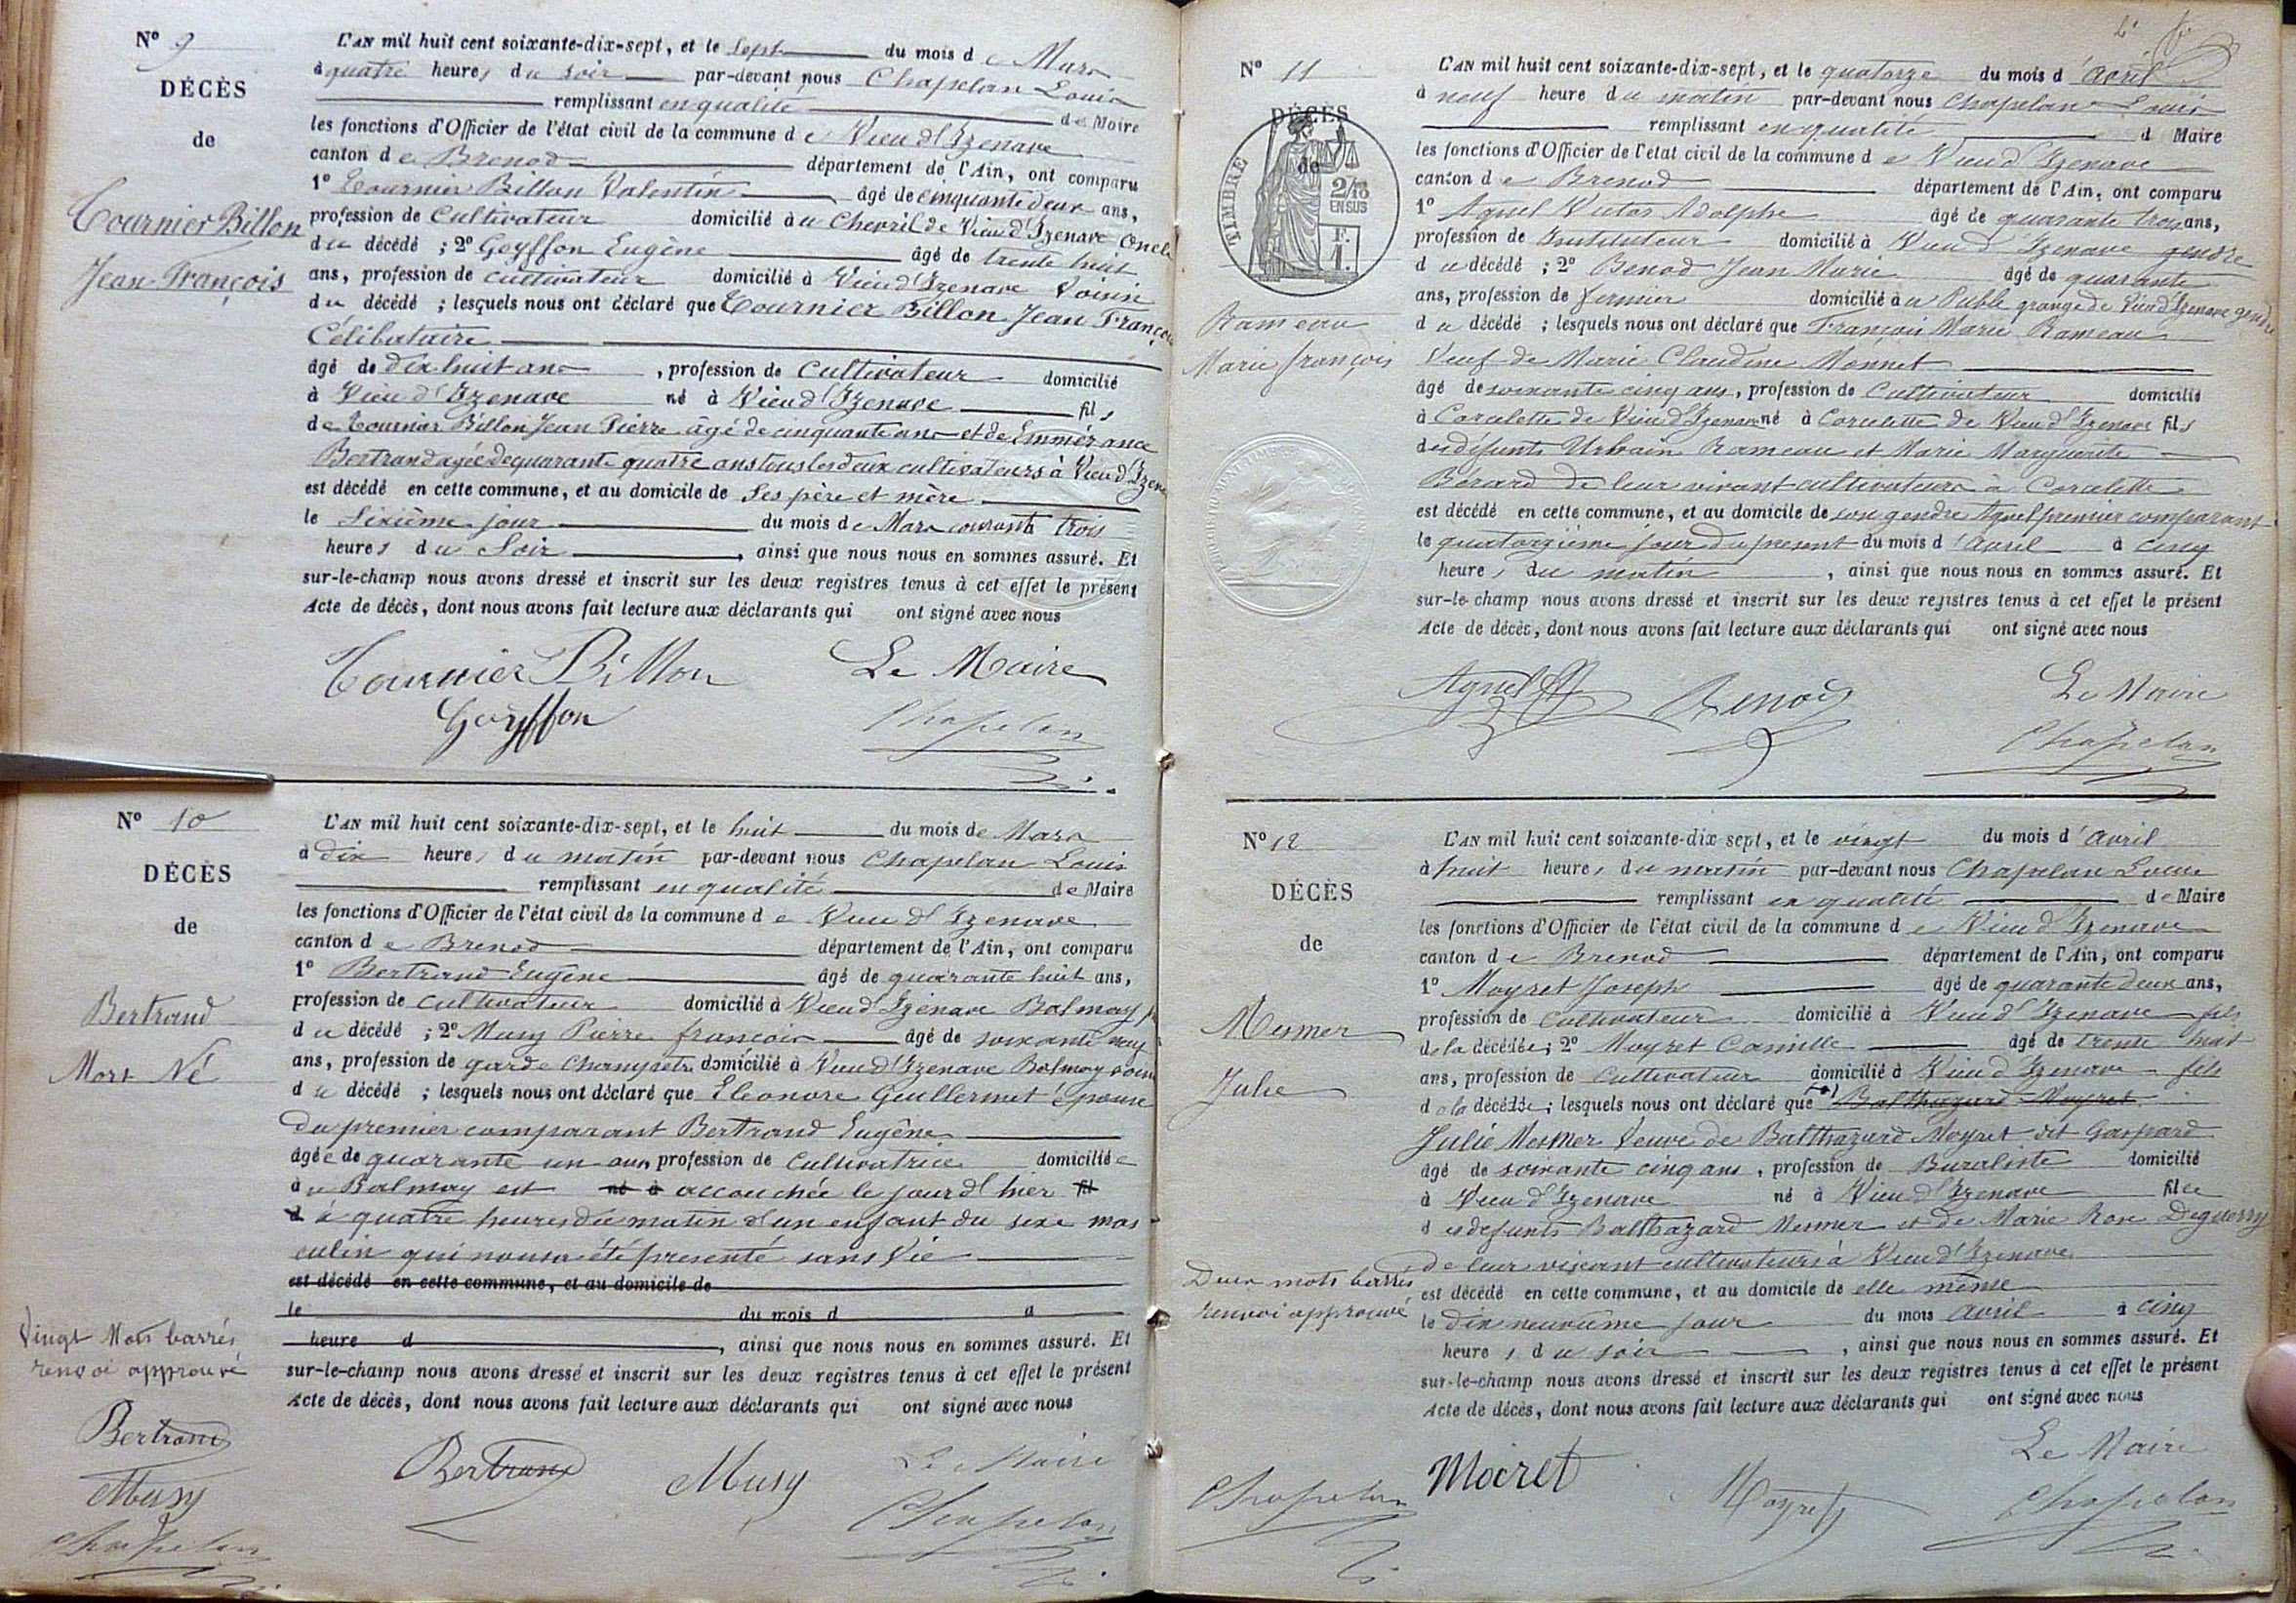 N° 9
DÉCÈS
de
Tournier Billon
Jean-François
L'AN mil huit cent soixante-dix-sept, et le Sept du mois de Mars
à quatre heures du soir par-devant nous Chapelan Louis
remplissant en qualité de Moire
les fonctions d'Officier de l'état civil de la commune de Vieu d'Izenave
canton de Brenod département de l'Ain, ont comparu
1° Tournier Billon Valentin âgé de cinquante deux ans,
profession de Cultivateur domicilié au Chevril de Vieu d'Izenave Oncle
du décédé ; 2° Goyffon Eugène âgé de trente huit
ans, profession de cultivateur domicilié à Vieu d'Izenave Voisin
du décédé ; lesquels nous ont déclaré que Tournier Billon Jean François
Célibataire
âgé de dix huit ans , profession de Cultivateur domicilié
à Vieu d'Izenave né à Vieu d'Izenave fils
de Tournier Billon Jean Pierre âgé de cinquante ans et de Emmérance
Bertrand agée de quarante quatre ans tous les deux cultivateurs à Vieu d'Izenave
est décédé en cette commune, et au domicile de Ses père et mère
le Sixième jour du mois de Mars courant à trois
heures du Soir , ainsi que nous nous en sommes assuré. Et
sur-le-champ nous avons dressé et inscrit sur les deux registres tenus à cet effet le présent
Acte de décès, dont nous avons fait lecture aux déclarants qui ont signé avec nous
Tournier Billon Le Maire
Goyffon Chapelan
N° 10
DÉCÈS
de
Bertrand
Mort Né
L'AN mil huit cent soixante-dix-sept, et le huit du mois de Mars
à dix heures du matin par-devant nous Chapelan Louis
remplissant en qualité de Maire
les fonctions d'Officier de l'état civil de la commune de Vieu d'Izenave
canton de Brenod département de l'Ain, ont comparu
1° Bertrand Eugène âgé de quarante huit ans,
profession de cultivateur domicilié à Vieu d'Izenave Balmay
du décédé ; 2° Musy Pierre françois âgé de soixante neuf
ans, profession de garde Champetre domicilié à Vieu d'Izenave Balmay voisin
du décédé ; lesquels nous ont déclaré que Eléonore Guillermet épouse
du premier comparant Bertrand Eugène
âgée de quarante un ans profession de Cultivatrice domiciliée
au Balmay est né à accouchée le jour d'hier fil
d à quatre heures du matin d'un enfant du sexe mas
culin qui nous a été présenté sans Vie
est décédé en cette commune, et au domicile de
le du mois d à
heure d , ainsi que nous nous en sommes assuré. Et
sur-le-champ nous avons dressé et inscrit sur les deux registres tenus à cet effet le présent
Acte de décès, dont nous avons fait lecture aux déclarants qui ont signé avec nous
Vingt Mots barrés
renvoi approuvé
Bertrand
Musy
Chapelan
Bertrand Musy Le Maire
Chapelan
N° 11
DÉCÈS
de
TIMBRE
2/10
EN SUS
F.
1.
Rameau
Marie françois
L'AN mil huit cent soixante-dix-sept, et le quatorze du mois d'avril
à neuf heure du matin par-devant nous Chapelan Louis
remplissant en qualité d Maire
les fonctions d'Officier de l'état civil de la commune de Vieu d'Izenave
canton de Brenod département de l'Ain, ont comparu
1° Agnel Victor Adolphe âgé de quarante trois ans,
profession de Instituteur domicilié à Vieu d'Izenave gendre
du décédé ; 2° Benod Jean Marie âgé de quarante
ans, profession de fermier domicilié au Puble grange de Vieu d'Izenave gendre
du décédé ; lesquels nous ont déclaré que François Marie Rameau
Veuf de Marie Claudine Monnet
âgé de soixante cinq ans, profession de Cultivateur domicilié
à Corcelette de Vieu d'Izenave né à Corcelette de Vieu d'Izenave fils
des défunts Urbain Rameau et Marie Marguerite
Bérard de leur vivant cultivateurs à Corcelette
est décédé en cette commune, et au domicile de son gendre Agnel premier comparant
le quatorzième jour du présent du mois d'avril à cinq
heures du matin , ainsi que nous nous en sommes assuré. Et
sur-le-champ nous avons dressé et inscrit sur les deux registres tenus à cet effet le présent
Acte de décès, dont nous avons fait lecture aux déclarants qui ont signé avec nous
Agnel Benod Le Maire
Chapelan
N° 12
DÉCÈS
de
Mermer
Julie
L'AN mil huit cent soixante-dix-sept, et le vingt du mois d'avril
à huit heures du matin par-devant nous Chapelan Louis
remplissant en qualité de Maire
les fonctions d'Officier de l'état civil de la commune de Vieu d'Izenave
canton de Brenod département de l'Ain, ont comparu
1° Moyret Joseph âgé de quarante deux ans,
profession de cultivateur domicilié à Vieu d'Izenave fils
de la décédée ; 2° Moyret Camille âgé de trente huit
ans, profession de Cultivateur domicilié à Vieu d'Izenave fils
de la décédée ; lesquels nous ont déclaré que Balthazard Moyret
Julie Mermer Veuve de Balthazard Moyret dit Gaspard
âgé de soixante cinq ans , profession de Buraliste domicilié
à Vieu d'Izenave né à Vieu d'Izenave fille
des defunts Balthazard Mermer et de Marie Rose Deguerry
de leur vivant cultivateurs à Vieu d'Izenave
est décédé en cette commune, et au domicile de elle même
le dix neuvième jour du mois avril à cinq
heures du soir , ainsi que nous nous en sommes assuré. Et
sur-le-champ nous avons dressé et inscrit sur les deux registres tenus à cet effet le présent
Acte de décès, dont nous avons fait lecture aux déclarants qui ont signé avec nous
Deux mots barrés
renvoi approuvé
Chapelan
Moiret Moyret Le Maire
Chapelan